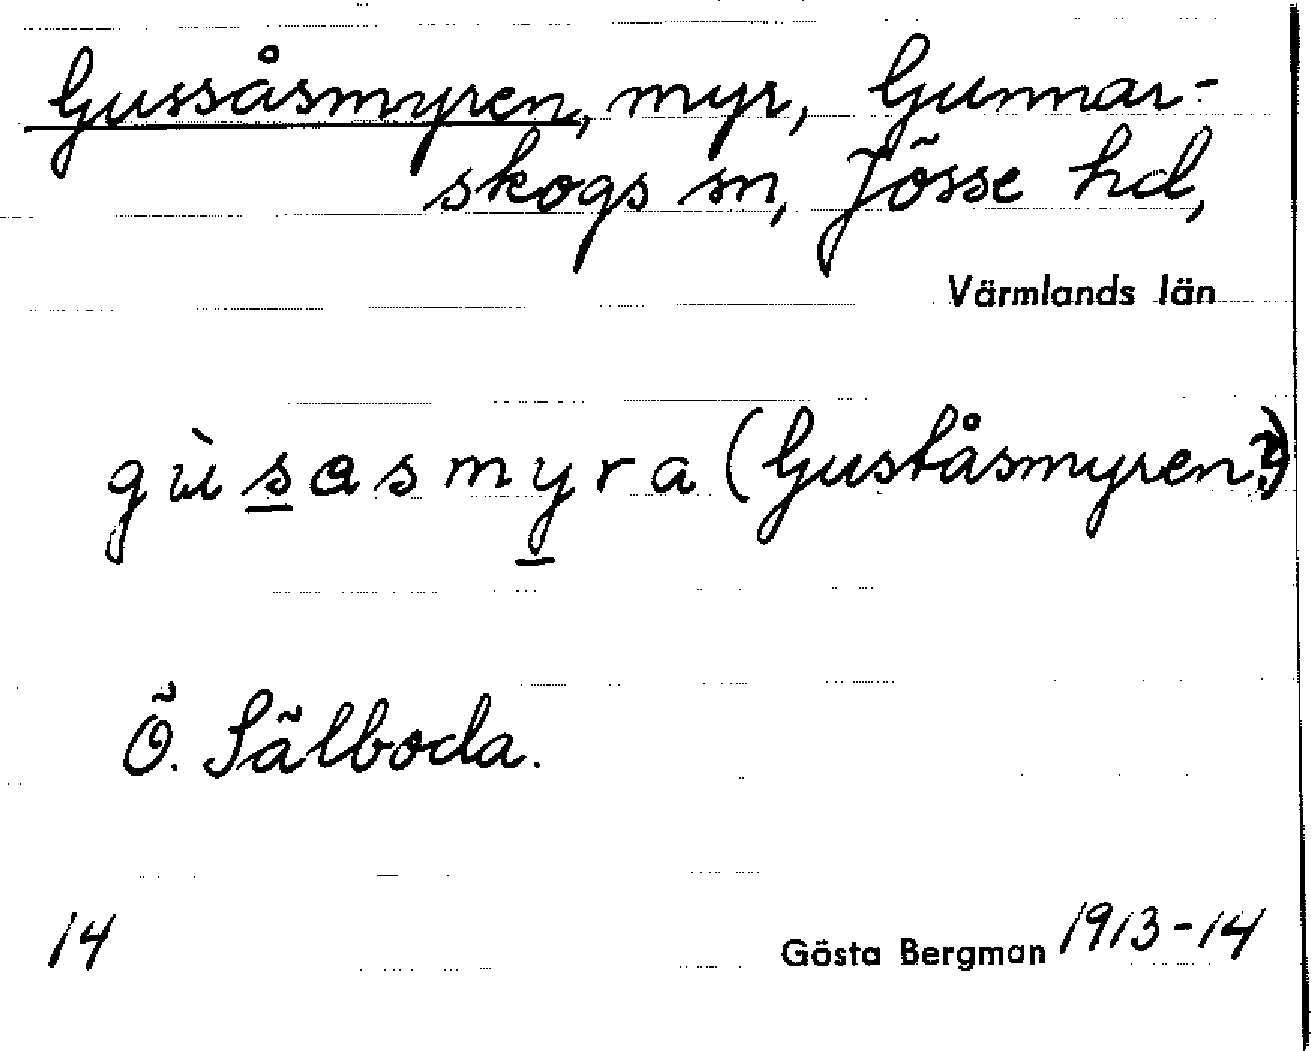 Gussåsmyren, myr, Gunnar-
skogs sn, Jösse hd,
Värmlands län
gùsasmyra (Guståsmyren?)
Ö. Sälboda.
14
Gösta Bergman 1913-14